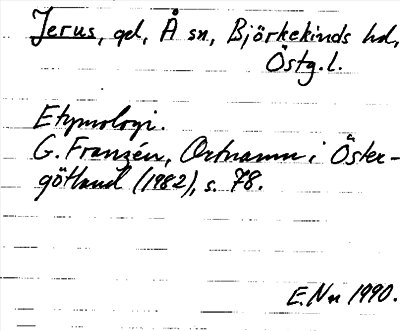 Jerus, gd, Å sn, Björkekinds hd,
Östg.l.
Etymologi.
G. Franzén, Ortnamn i Öster-
götland (1982), s. 78.
E.Nn 1990.